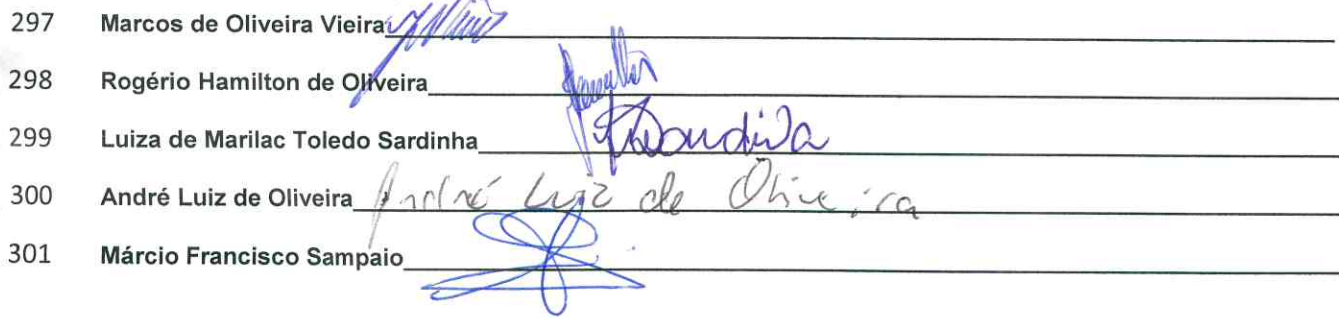 297 Marcos de Oliveira Vieira
298 Rogério Hamilton de Oliveira
299 Luiza de Marilac Toledo Sardinha
300 André Luiz de Oliveira André Luiz de Oliveira
301 Márcio Francisco Sampaio